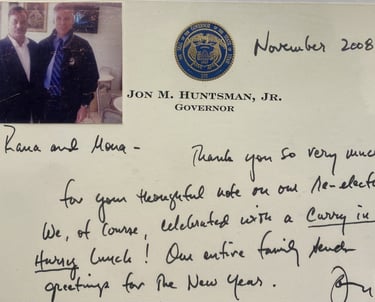 November 2008
JON M. HUNTSMAN, JR.
GOVERNOR
Rana and Mona - Thank you so very much
for your thoughtful note on our re-elect
We, of course, celebrated with a Curry in
Hurry lunch! Our entire family sends
greetings for the New Year.